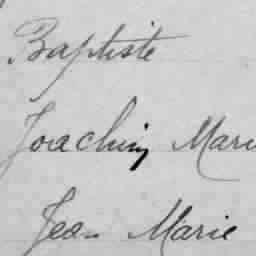 Baptiste
Joachim Marie
Jean Marie